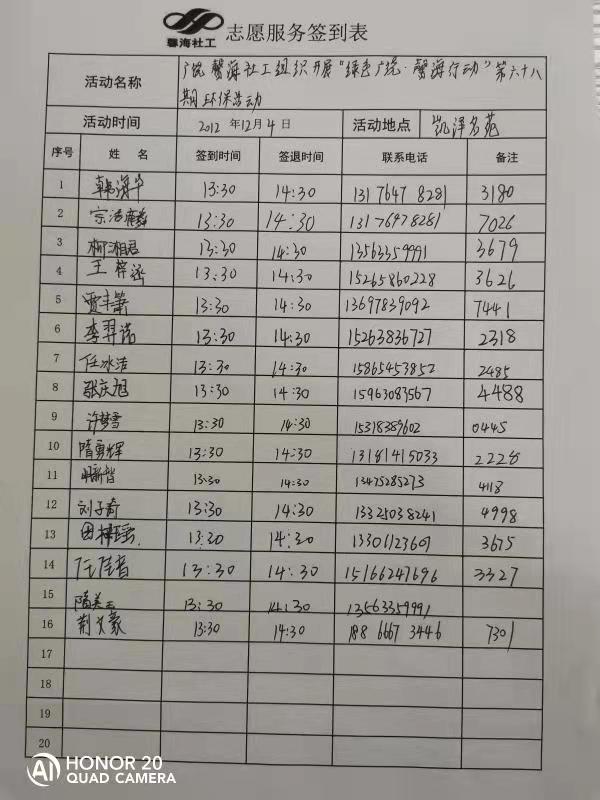 馨海社工 志愿服务签到表
活动名称 广饶馨海社工组织开展“绿色广饶·馨海行动”第六十八
期环保活动
活动时间 2012 年12月4日 活动地点 凯泽名苑
序号 姓 名 签到时间 签退时间 联系电话 备注
1 韩海华 13:30 14:30 131 7647 8281 3180
2 13:30 14:30 13176478281 7026
3 柳湘君 13:30 14:30 13563359991 3679
4 王梓涵 13:30 14:30 15265860228 3626
5 贾丰箫 13:30 14:30 13697839092 7441
6 李羿诺 13:30 14:30 15263836727 2318
7 任冰洁 13:30 14:30 15865453852 2485
8 张庆旭 13:30 14:30 15963083567 4488
9 许梦雪 13:30 14:30 15318389602 0445
10 隋勇辉 13:30 14:30 13181415033 2228
11 13:30 14:30 13475285273 4118
12 刘子奇 13:30 14:30 13325038241 4998
13 13:30 14:30 13301123609 3675
14 任佳音 13:30 14:30 15166247696 3327
15 隋美玉 13:30 14:30 13563359991
16 荆文豪 13:30 14:30 188 6667 3446 7301
17
18
19
20
AI HONOR 20
QUAD CAMERA